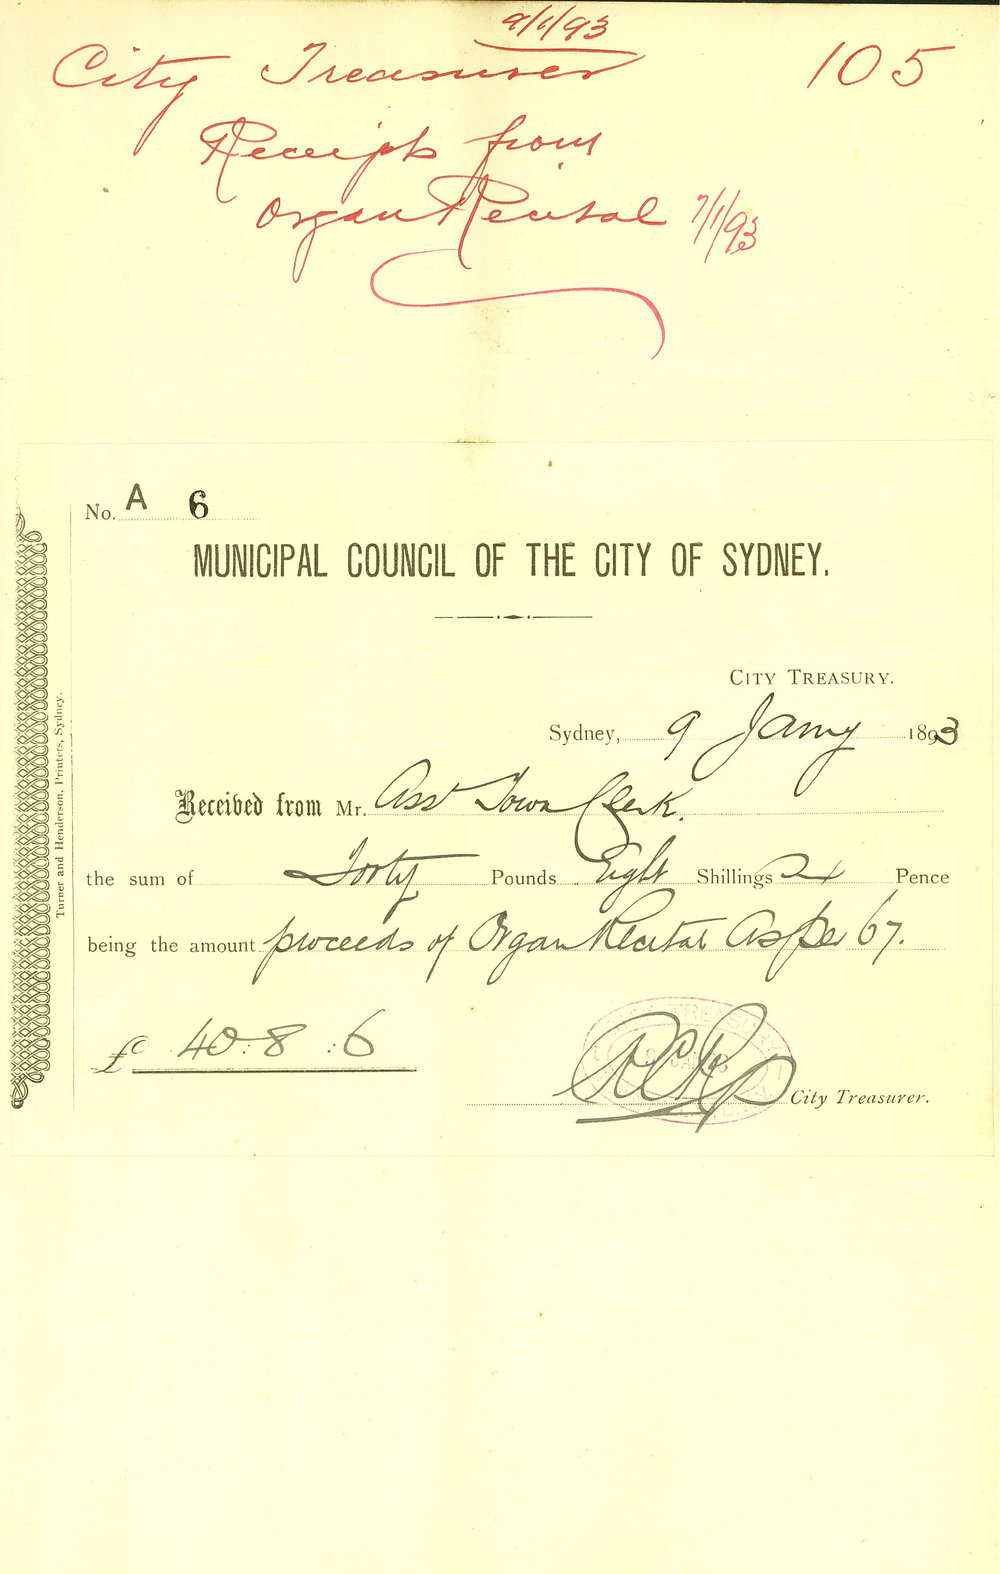 9/1/93
City Treasurer 105
Receipts from
Organ Recital 7/1/93
No. A 6
MUNICIPAL COUNCIL OF THE CITY OF SYDNEY.
CITY TREASURY.
Sydney, 9 Jany 1893
Received from Mr. Asst Town Clerk.
the sum of Forty Pounds Eight Shillings Pence
being the amount proceeds of Organ Recital As per 67.
£ 40:8:6
City Treasurer.
Turner and Henderson, Printers, Sydney.